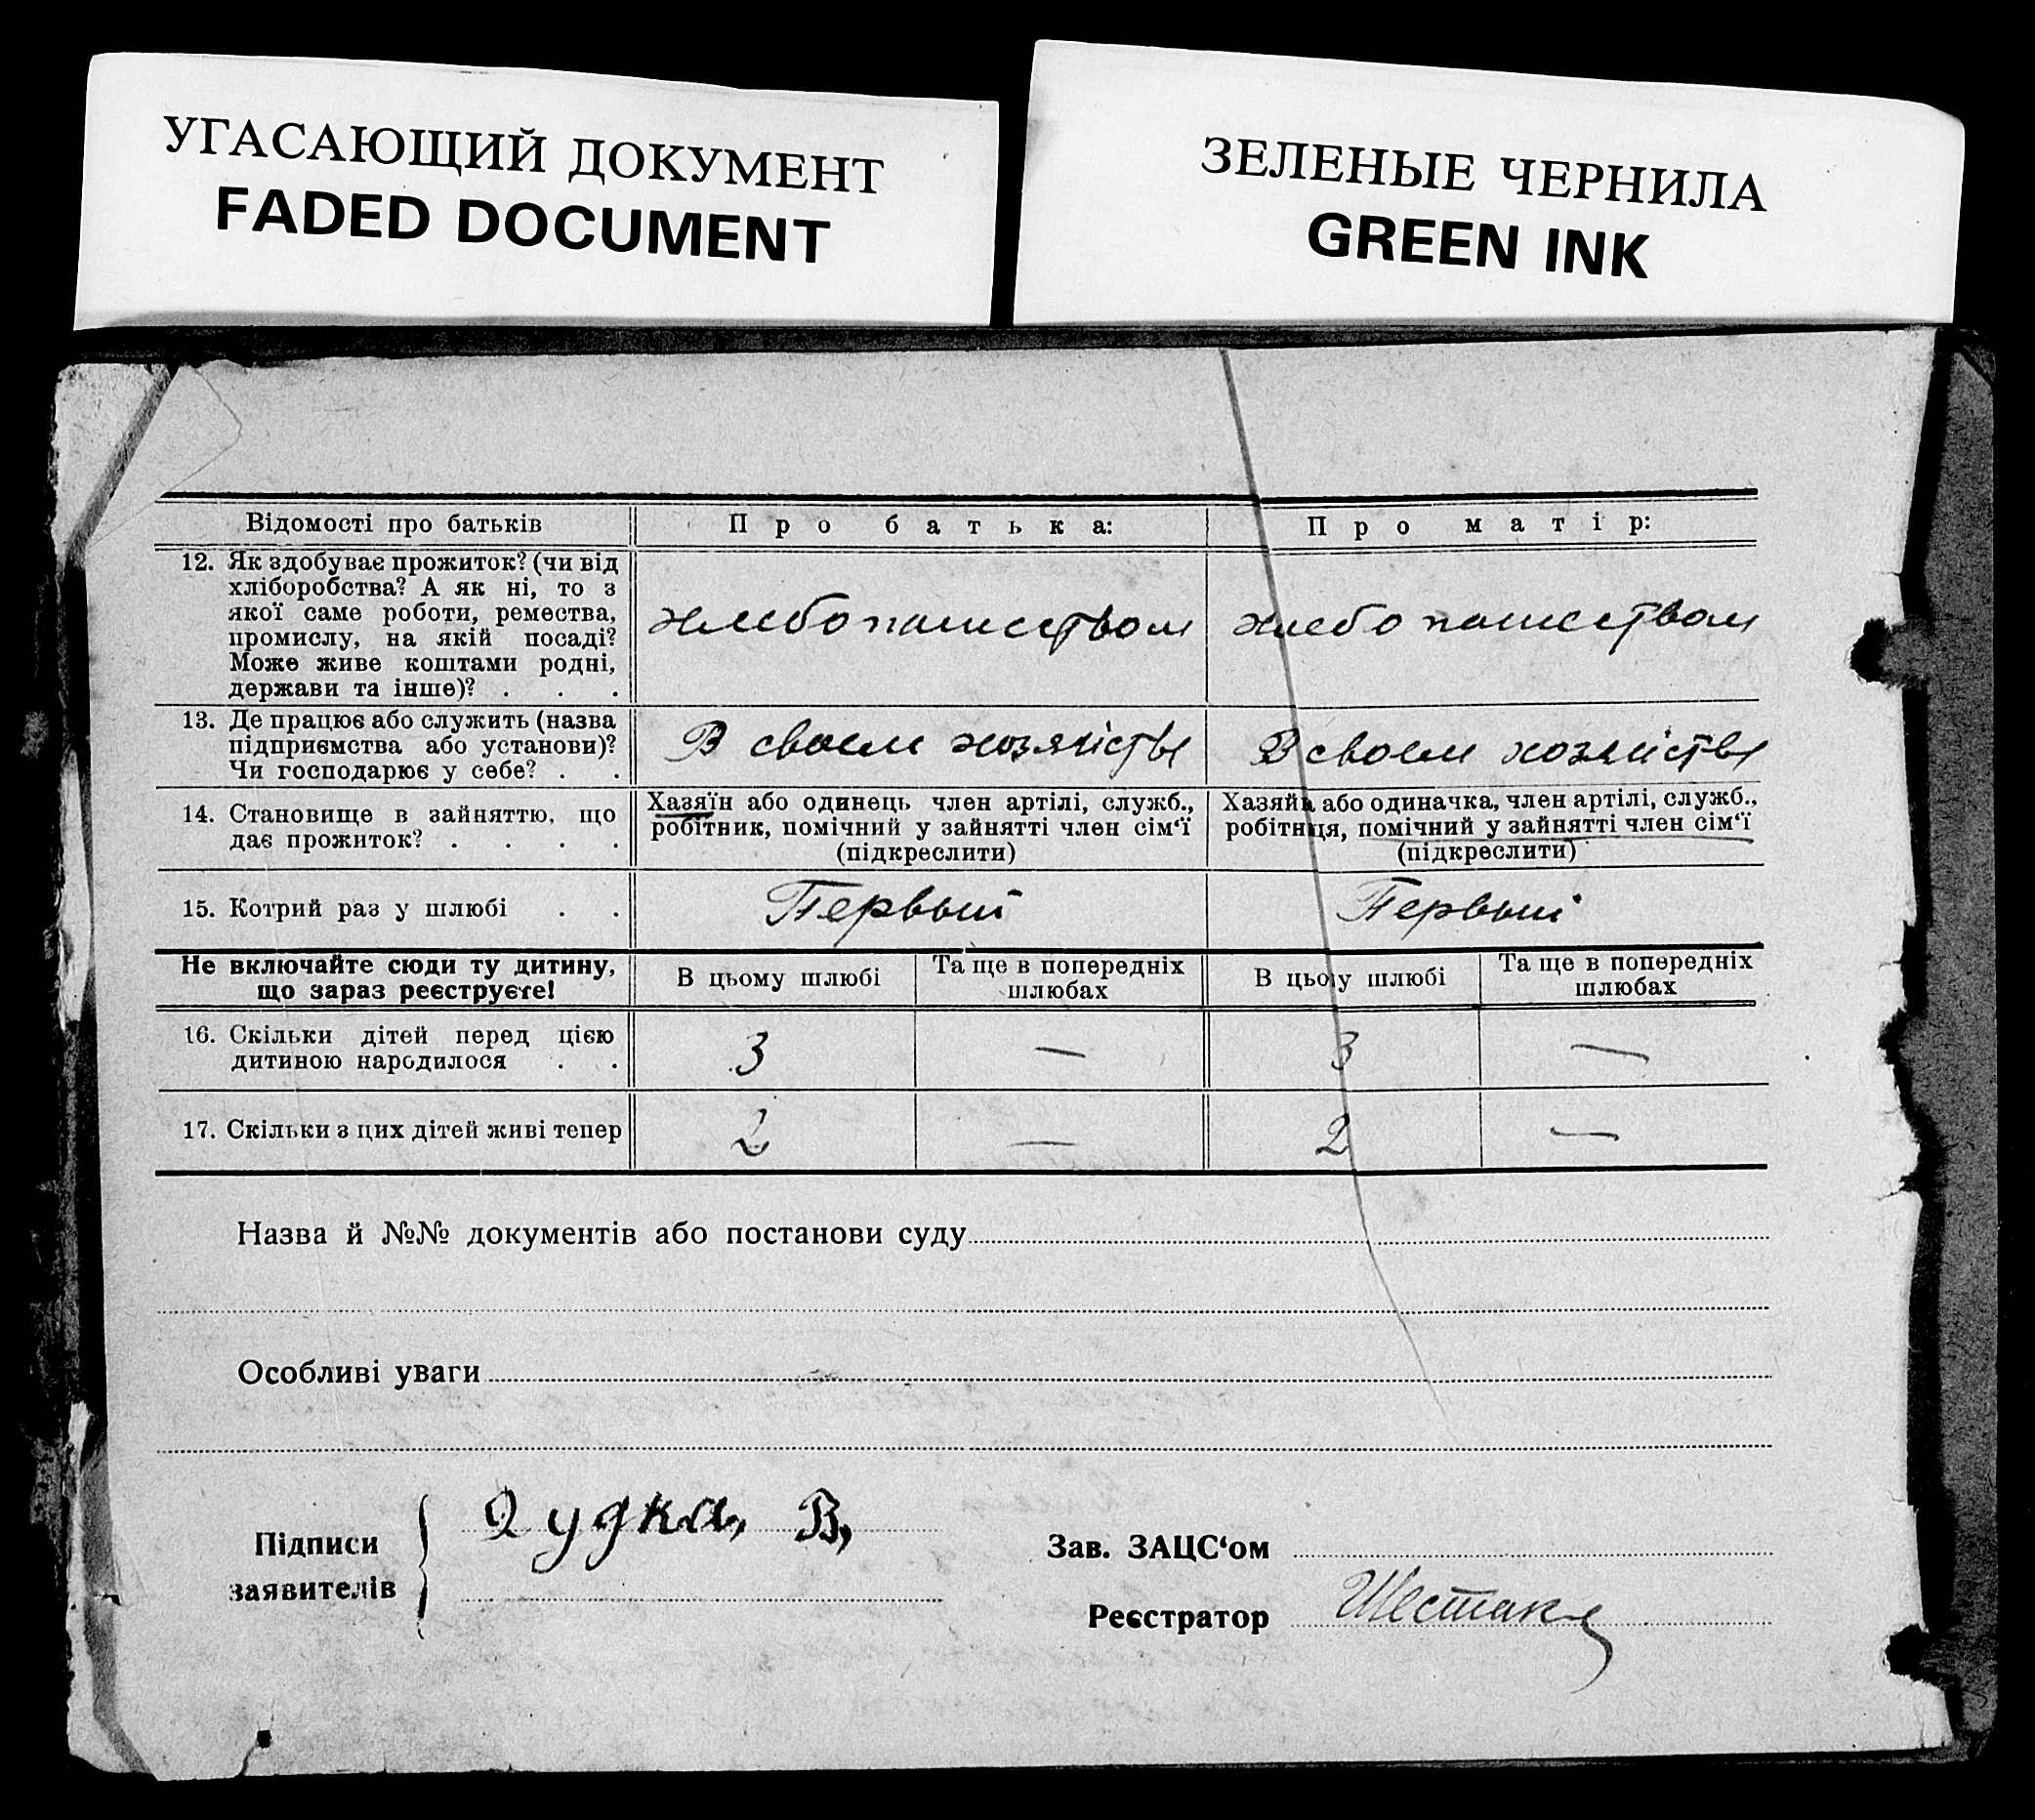 УГАСАЮЩИЙ ДОКУМЕНТ
FADED DOCUMENT
ЗЕЛЕНЫЕ ЧЕРНИЛА
GREEN INK
Відомості про батьків
Про батька:
Про матір:
12. Як здобуває прожиток? (чи від
хліборобства? А як ні, то з
якої саме роботи, ремества,
промислу, на якій посаді?
Може живе коштами родні,
держави та інше)? . . .
хлебопашеством
хлебопашеством
13. Де працює або служить (назва
підприємства або установи)?
Чи господарює у себе? . .
В своем хозяйстве
В своем хозяйстве
14. Становище в зайняттю, що
дає прожиток? . . . .
Хазяїн або одинець член артілі, служб.,
робітник, помічний у зайнятті член сім‘ї
(підкреслити)
Хазяйка або одиначка, член артілі, служб.,
робітниця, помічний у зайнятті член сім‘ї
(підкреслити)
15. Котрий раз у шлюбі . .
Первый
Первый
Не включайте сюди ту дитину,
що зараз реєструєте!
В цьому шлюбі
Та ще в попередніх
шлюбах
В цьому шлюбі
Та ще в попередніх
шлюбах
16. Скільки дітей перед цією
дитиною народилося . .
3
—
3
—
17. Скільки з цих дітей живі тепер
2
—
2
—
Назва й №№ документів або постанови суду
Особливі уваги
Підписи
заявителів
Дудка, В,
Зав. ЗАЦС‘ом
Реєстратор